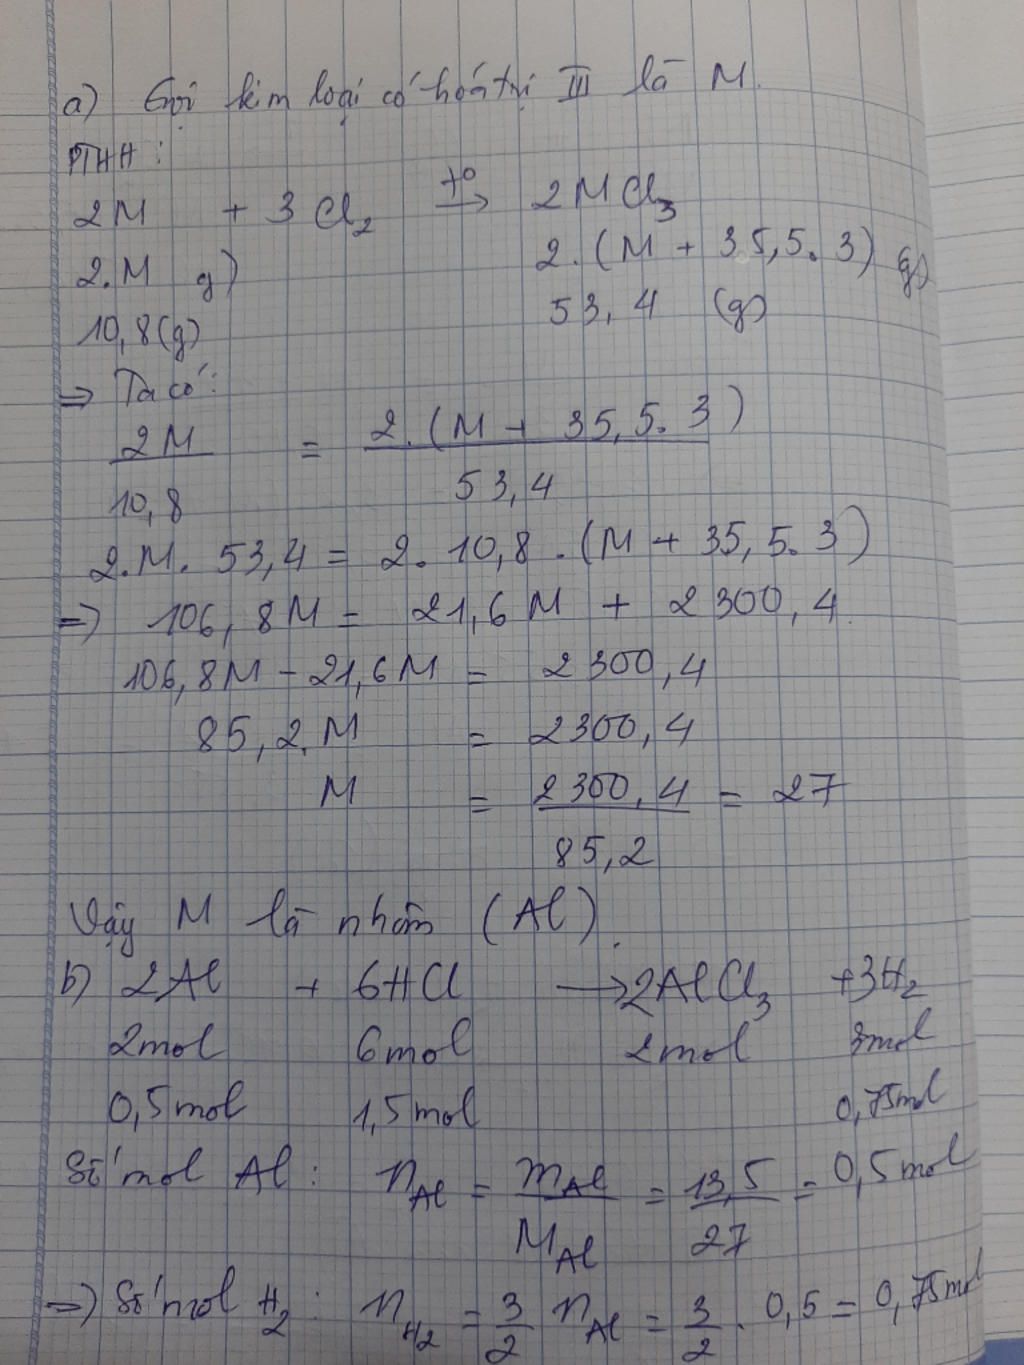 a) Gọi kim loại có hoá trị III là M.
PTHH:
2M + 3Cl₂ →(t°) 2MCl₃
2.M g) 2.(M + 35,5.3) g)
10,8(g) 53,4 (g)
=> Ta có:
2M/10,8 = 2.(M + 35,5.3)/53,4
2.M.53,4 = 2.10,8.(M + 35,5.3)
=) 106,8M = 21,6M + 2300,4.
106,8M - 21,6M = 2300,4
85,2.M = 2300,4
M = 2300,4/85,2 = 27
Vậy M là nhôm (Al).
b) 2Al + 6HCl → 2AlCl₃ + 3H₂
2mol 6mol 2mol 3mol
0,5mol 1,5mol 0,75mol
Số mol Al: n_Al = m_Al/M_Al = 13,5/27 = 0,5mol
=) Số mol H₂: n_H₂ = 3/2 n_Al = 3/2 . 0,5 = 0,75mol